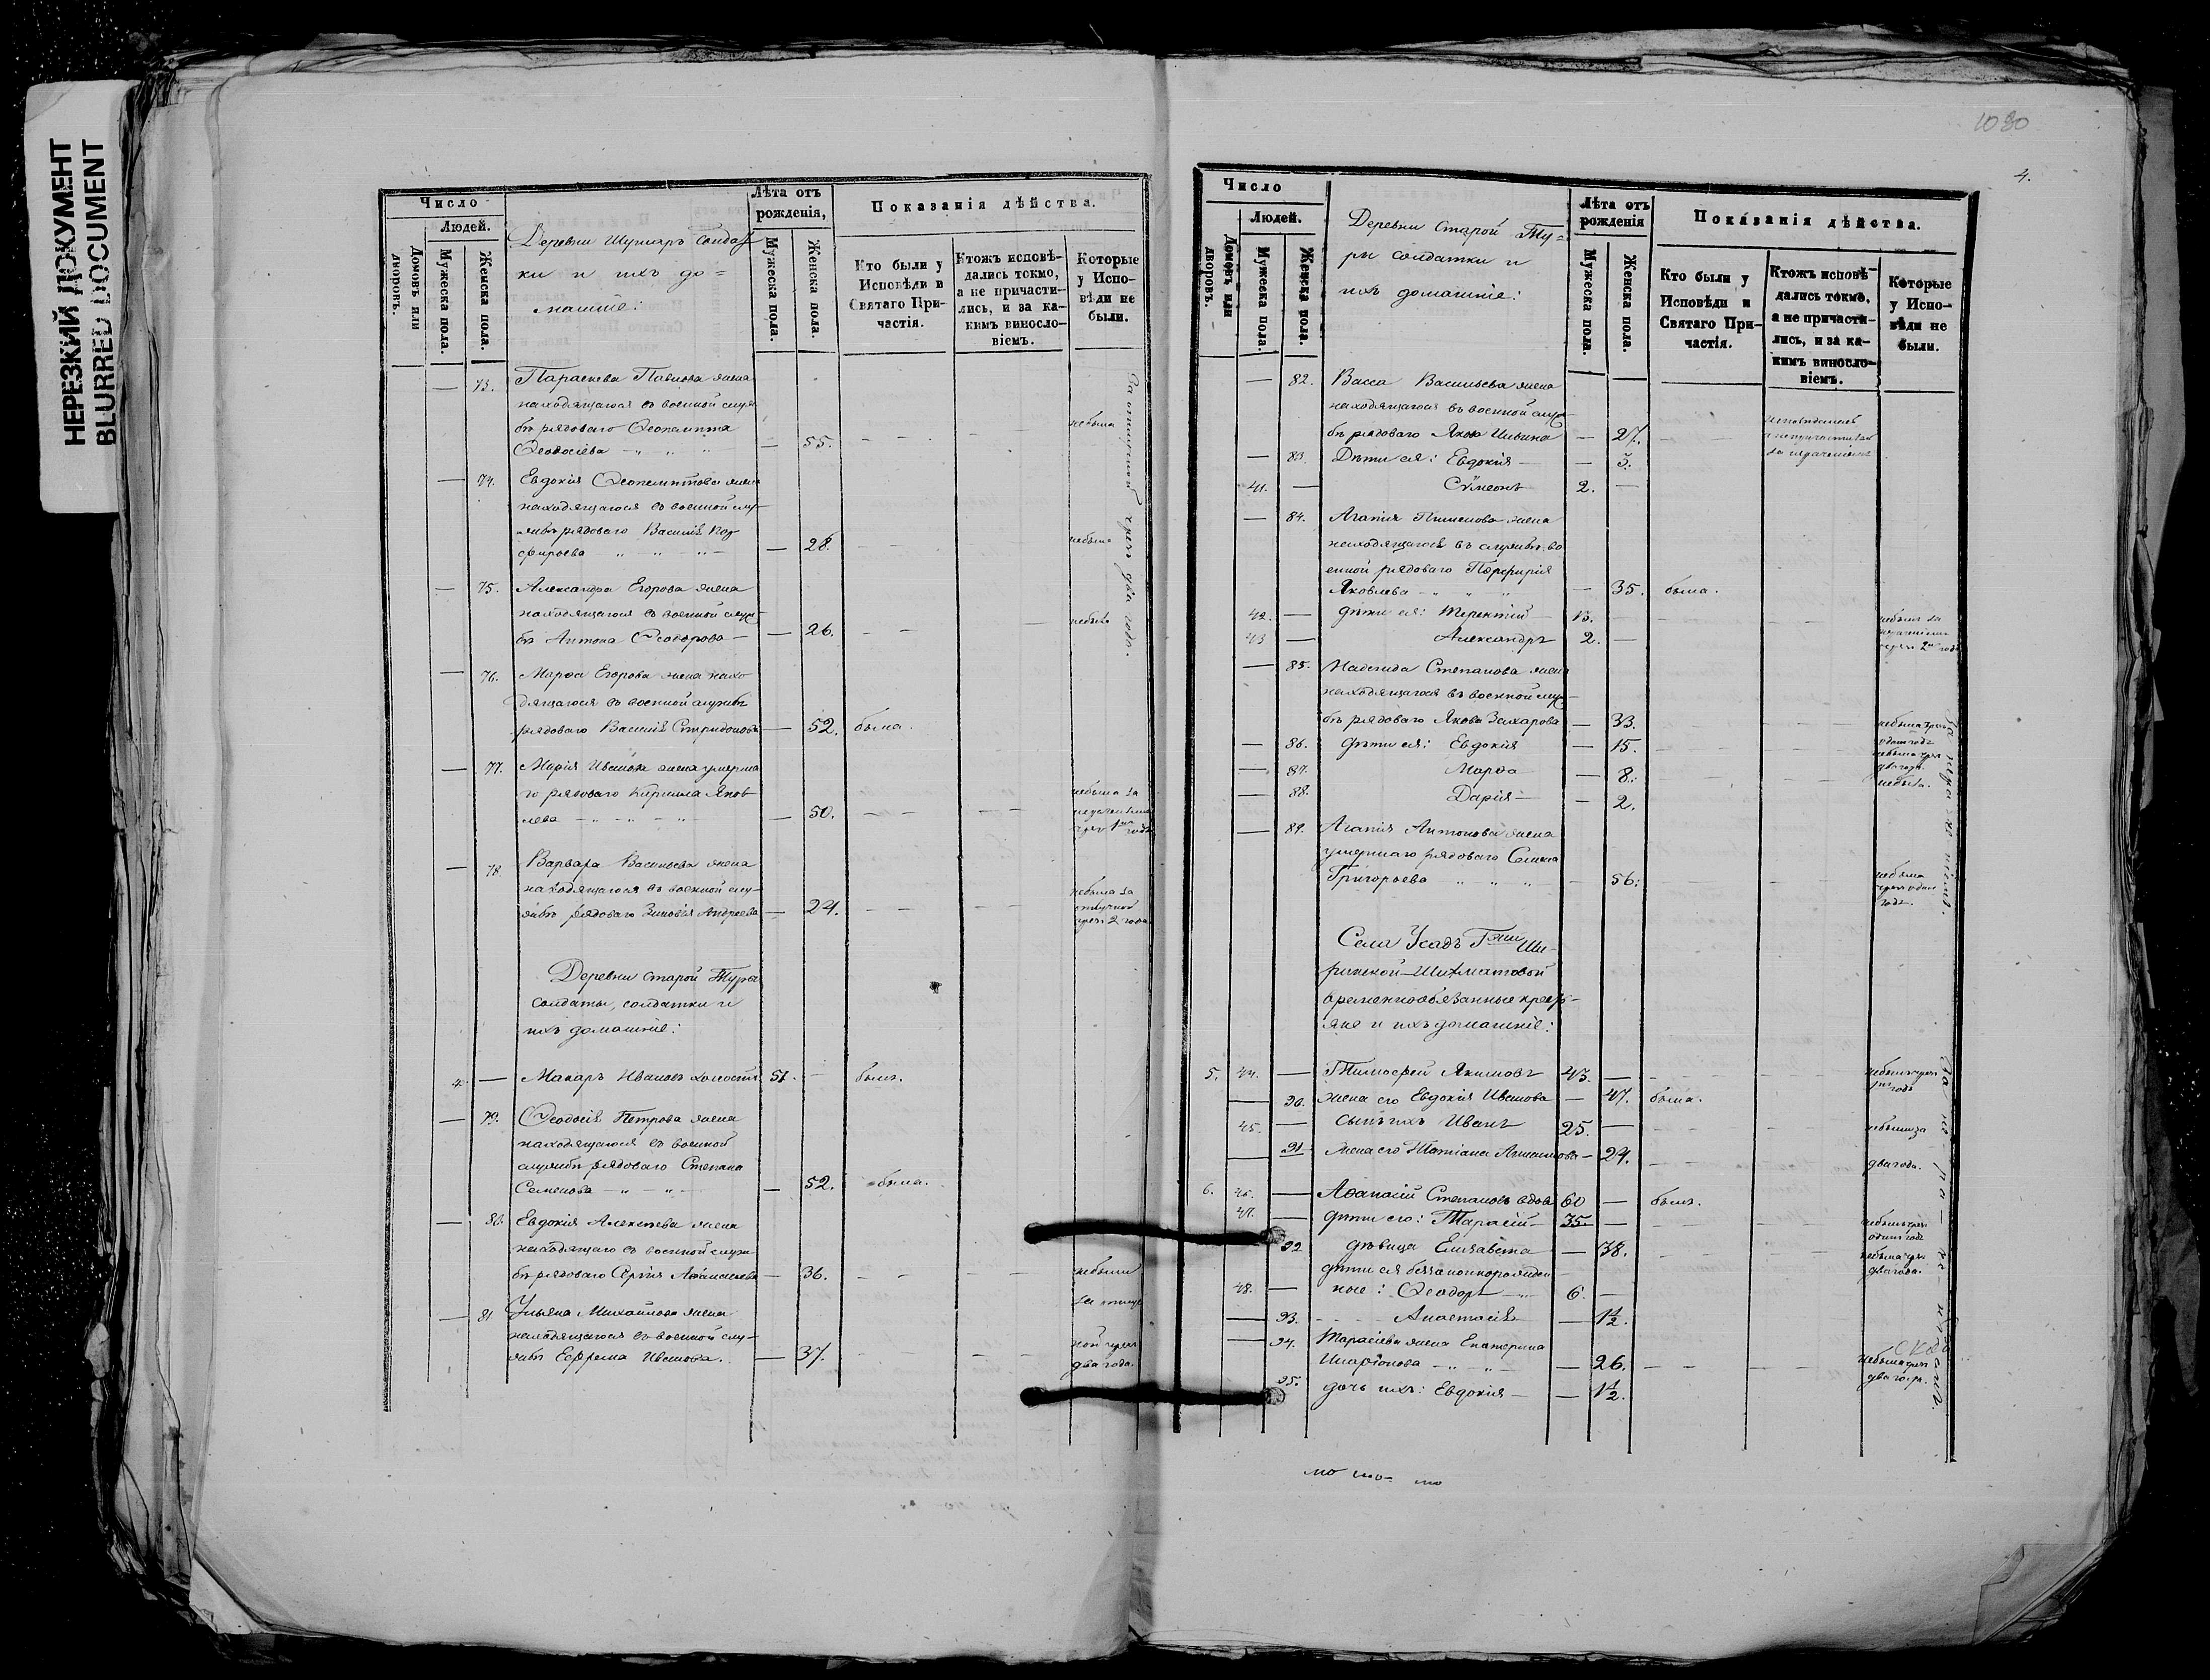 НЕРЕЗКИЙ ДОКУМЕНТ
BLURRED DOCUMENT
Число
Людей.
Домовъ или дворовъ.
Мужеска пола.
Женска пола.
Деревни Шушаръ Солдат
ки и ихъ до=
машніе:
Лѣта отъ
рожденія,
Мужеска пола.
Женска пола.
Показанія дѣйства.
Кто были у
Исповѣди и
Святаго При-
частія.
Ктожъ исповѣ-
дались токмо,
а не причасти-
лись, и за ка-
кимъ виносло-
віемъ.
Которые
у Испо-
вѣди не
были.
— 73. Параскева Павлова жена
находящагося въ военной служ
бѣ рядоваго Ѳеопемпта небыла
Ѳеодосіева — 55.
— 74. Евдокія Ѳеопемптова жена
находящагося въ военной слу-
жбѣ рядоваго Василія Пор
фирьева — 28. небыла
— 75. Александра Егорова жена
находящагося въ военной служ
бѣ Антона Ѳеодорова — 26. небыла
— 76. Марѳа Егорова жена нахо
дящагося въ военной службѣ
рядоваго Василія Спиридонова — 52. была.
— 77. Марія Иванова жена умерша
го рядоваго Кирилла Яков небыла за
лева — 50.
— 78. Варвара Васильева жена
находящагося въ военной слу- небыла за
жбѣ рядоваго Зиновія Андреева — 24. отлучкой
чрезъ 2 года
За отлучкой чрезъ два года.
Деревни Старой Туры
солдаты, солдатки и
ихъ домашніе:
40. — Макаръ Ивановъ холостъ 51. — былъ.
— 79. Ѳеодосія Петрова жена
находящагося въ военной
службѣ рядоваго Степана
Семенова — 52. была.
— 80. Евдокія Алексѣева жена
находящаго въ военной служ
бѣ рядоваго Сергія Аѳанасьева — 36. небыли
за отлуч
— 81 Ульяна Михайлова жена
находящагося въ военной слу- кой чрезъ
жбѣ Ефрема Иванова. — 37. два года.
1080
4.
Число
Людей.
Домовъ или дворовъ.
Мужеска пола.
Женска пола.
Деревни Старой Ту=
ры солдатки и
ихъ домашніе:
Лѣта отъ
рожденія
Мужеска пола.
Женска пола.
Показанія дѣйства.
Кто были у
Исповѣди и
Святаго При-
частія.
Ктожъ исповѣ-
дались токмо,
а не причасти-
лись, и за ка-
кимъ винosло-
віемъ.
Которые
у Испо-
вѣди не
были.
— 82. Васса Васильева жена
находящагося въ военной служ
бѣ рядоваго Якова Ильина — 27.
— 83. Дѣти ея: Евдокія — 3.
41. — Сѷмеонъ 2. —
— 84. Агапія Пименова жена
находящагося въ службѣ во
енной рядоваго Порфирія
Яковлева — 35. была.
42. — дѣти ея: Терентій 13. небылъ за
43 — Александръ 2. — чрезъ 2 года
— 85. Надежда Степанова жена
находящагося въ военной служ
бѣ рядоваго Якова Захарова — 33. небыла чрезъ
— 86. дѣти ея: Евдокія — 15. одинъ годъ
небыла чрезъ
— 87. Марѳа — 8. два года.
— 88. Дарія — 2. небыла.
— 89. Агапія Антонова жена
умершаго рядоваго Семена
Григорьева — 56. небыла
чрезъ одинъ
годъ.
Села Усадъ Гжи Ши-
ринской-Шихматовой
временнообязанные кресть-
яне и ихъ домашніе:
5. 44. — Тимоѳей Якимовъ 43. — небылъ чрезъ
годъ
— 90. жена его Евдокія Иванова — 47. была.
45. — сынъ ихъ Иванъ 25. — небыли за
— 91 жена его Татіана — 24. два года.
6. 46. — Аѳанасій Степановъ вдовъ 60 — былъ.
47. — дѣти его: Тарасій 35. — небылъ чрезъ
одинъ годъ
92 дѣвица Елизавета — 38. небыла чрезъ
два года.
дѣти ея беззаконнорожден
48. — ные: Ѳеодоръ 6. —
— 93. Анастасія — 1½.
— 94. Тарасіева жена Екатерина
Иларіонова — 26. небыла чрезъ
два года.
95. дочь ихъ: Евдокія — 1½.